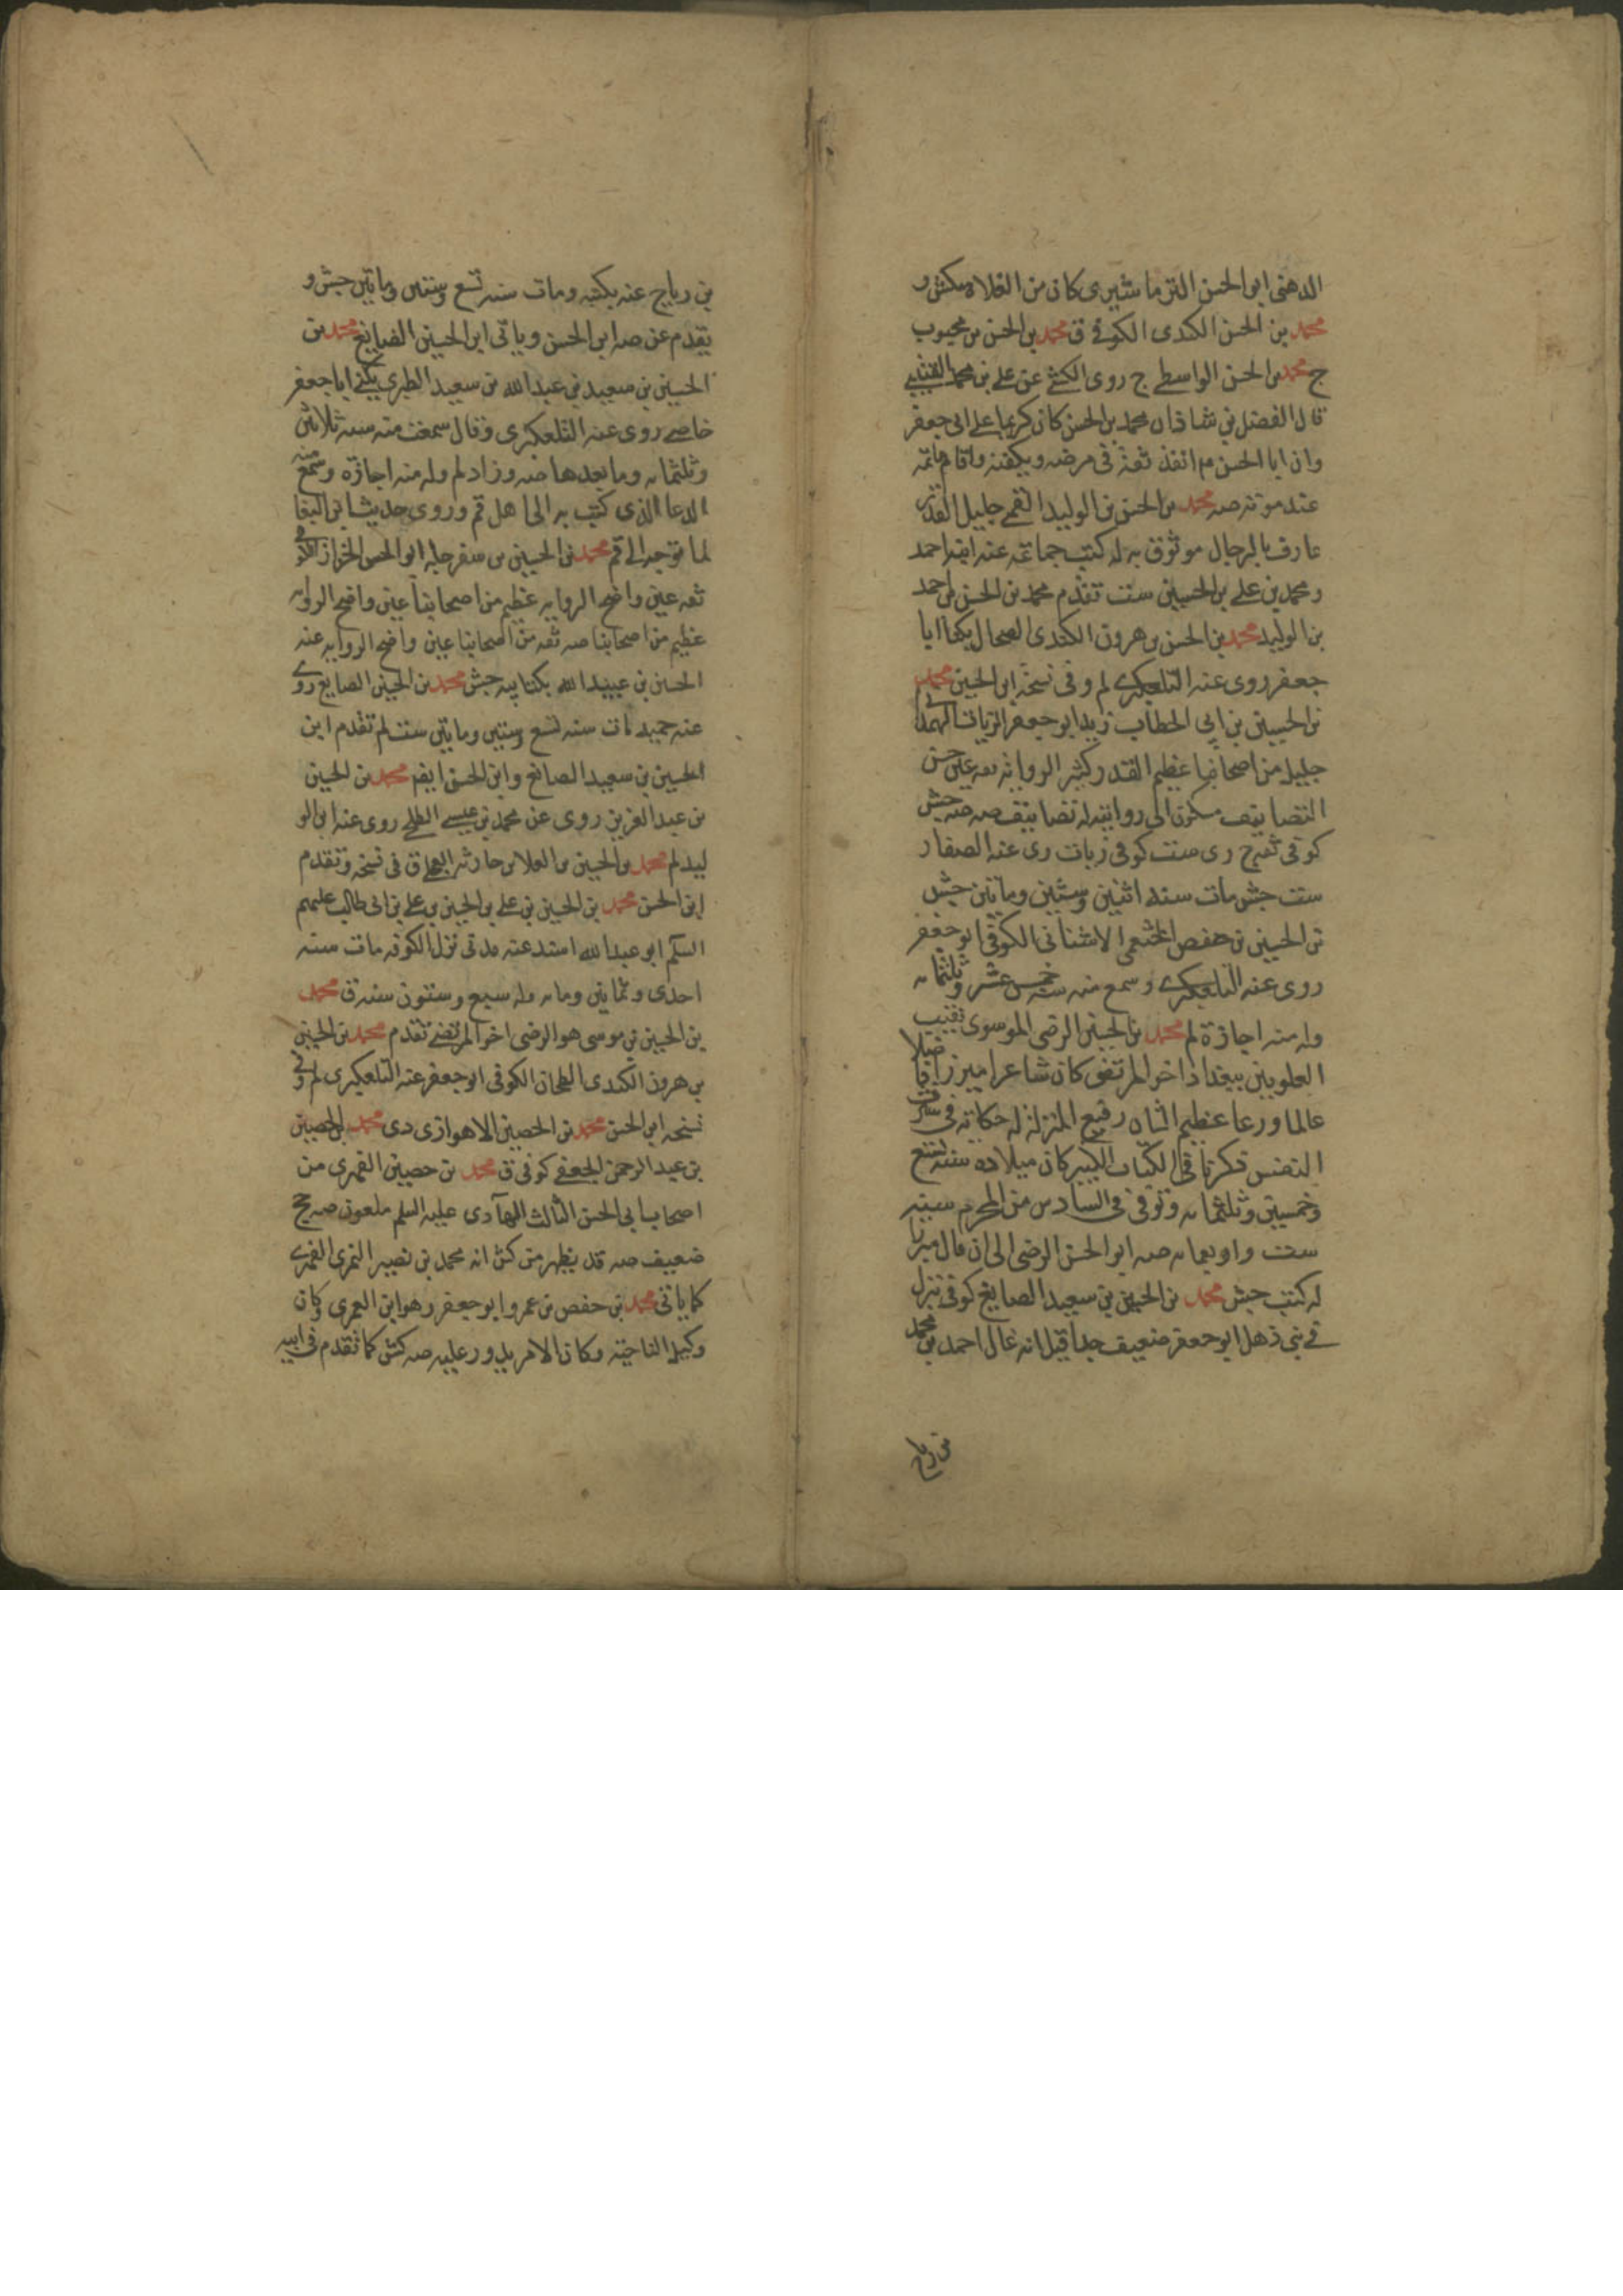 الدهنى ابو الحسن النرماشيرى كان من الغلاة كش و
محمد بن الحسن الكندى الكوفى ق محمد بن الحسن بن محبوب
ج محمد بن الحسن الواسطى ج روى الكشى عن على بن محمد القتيبى
قال الفضل بن شاذان محمد بن الحسن كان كريما على ابى جعفر
وان ابا الحسن م انفذ نفقة فى مرضه وبكفنه واقام ماتمه
عند موته صه محمد بن الحسن بن الوليد القمى جليل القدر
عارف بالرجال موثوق به له كتب جماعة عنه ابنه احمد
ومحمد بن على بن الحسين ست تقدم محمد بن الحسن بن احمد
بن الوليد محمد بن الحسن بن هرون الكندى الطحال يكنا ابا
جعفر روى عنه التلعكبرى لم وفى نسخة ابن الحسين محمد
بن الحسين بن ابى الخطاب زيد ابو جعفر الزيات الهمدانى
جليل من اصحابنا عظيم القدر كثير الرواية ثقة عين حسن
التصانيف مسكون الى روايته له تصانيف صه جش
كوفى ثقة ج رى ست كوفى زيات رى عنه الصفار
ست جش مات سنة اثنين وستين وماتين جش
بن الحسين بن حفص الخثعمى الاشنانى الكوفى ابو جعفر
روى عنه التلعكبرى وسمع منه سنة خمس عشر وثلثمائه
وله منه اجازة لم محمد بن الحسين الرضى الموسوى نقيب
العلويين ببغداد اخو المرتضى كان شاعرا مبرزا فاضلا
عالما ورعا عظيم الشان رفيع المنزلة له حكاية فى شرف
النفس ذكرناها فى الكتاب الكبير كان ميلاده سنة تسع
وخمسين وثلثمائه وتوفى فى السادس من المحرم سنة
ست واربعمائه صه ابو الحسن الرضى الى ان قال مبرزا
له كتب جش محمد بن الحسين بن سعيد الصايغ كوفى نزل
فى بنى ذهل ابو جعفر ضعيف جدا قيل انه غال احمد بن محمد
بن رياح عنه بكتبه ومات سنة تسع وستين وماتين جش و
يقدم عن صه ابن الحسن وياتى ابن الحسين الصايغ محمد بن
الحسين بن سعيد بن عبد الله بن سعيد الطبرى يكنى ابا جعفر
خاصى روى عنه التلعكبرى وقال سمعت منه سنة ثلاثين
وثلثمائه وما بعدها صه وزاد لم وله منه اجازة وسمع منه
الدعا الذى كتب به الى اهل قم وروى حديث ابن البقا
لما توجه الى قم محمد بن الحسين بن سفرجلة ابو الحسن الخزاز الكوفى
ثقة عين واضح الرواية عظيم من اصحابنا عين واضح الرواية
عظيم من اصحابنا صه ثقة من اصحابنا عين واضح الرواية عنه
الحسين بن عبيد الله بكتابيه جش محمد بن الحسين الصايغ روى
عنه حميد مات سنة تسع وستين وماتين ست لم تقدم ابن
الحسين بن سعيد الصانع وابن الحسن ايضا محمد بن الحسين
بن عبد العزيز روى عن محمد بن عيسى الطلحى روى عنه ابن الو
ليد لم محمد بن الحسين بن العلا بن حارثة ق فى نسخة وتقدم
ابن الحسن محمد بن الحسين بن على بن الحسين بن على بن ابى طالب عليهم
السلم ابو عبد الله اسند عنه مدنى نزل الكوفة مات سنة
احدى وثمانين ومائه وله سبع وستون سنة ق محمد
بن الحسين بن موسى هو الرضى اخو المرتضى تقدم محمد بن الحسين
بن هرون الكندى الطحان الكوفى ابو جعفر عنه التلعكبرى لم وفى
نسخة ابن الحسن محمد بن الحصين الاهوازى دى محمد بن الحصين
بن عبد الرحمن الجعفى كوفى ق محمد بن حصين الفهرى من
اصحاب ابى الحسن الثالث الهادى عليه السلم ملعون صه جخ
ضعيف صه قد يظهر من كش انه محمد بن نصير النمرى الفهرى
كما ياتى محمد بن حفص بن عمرو ابو جعفر وهو ابن العمرى وكان
وكيل الناحية وكان الامر يدور عليه صه كش كما تقدم فى ابيه